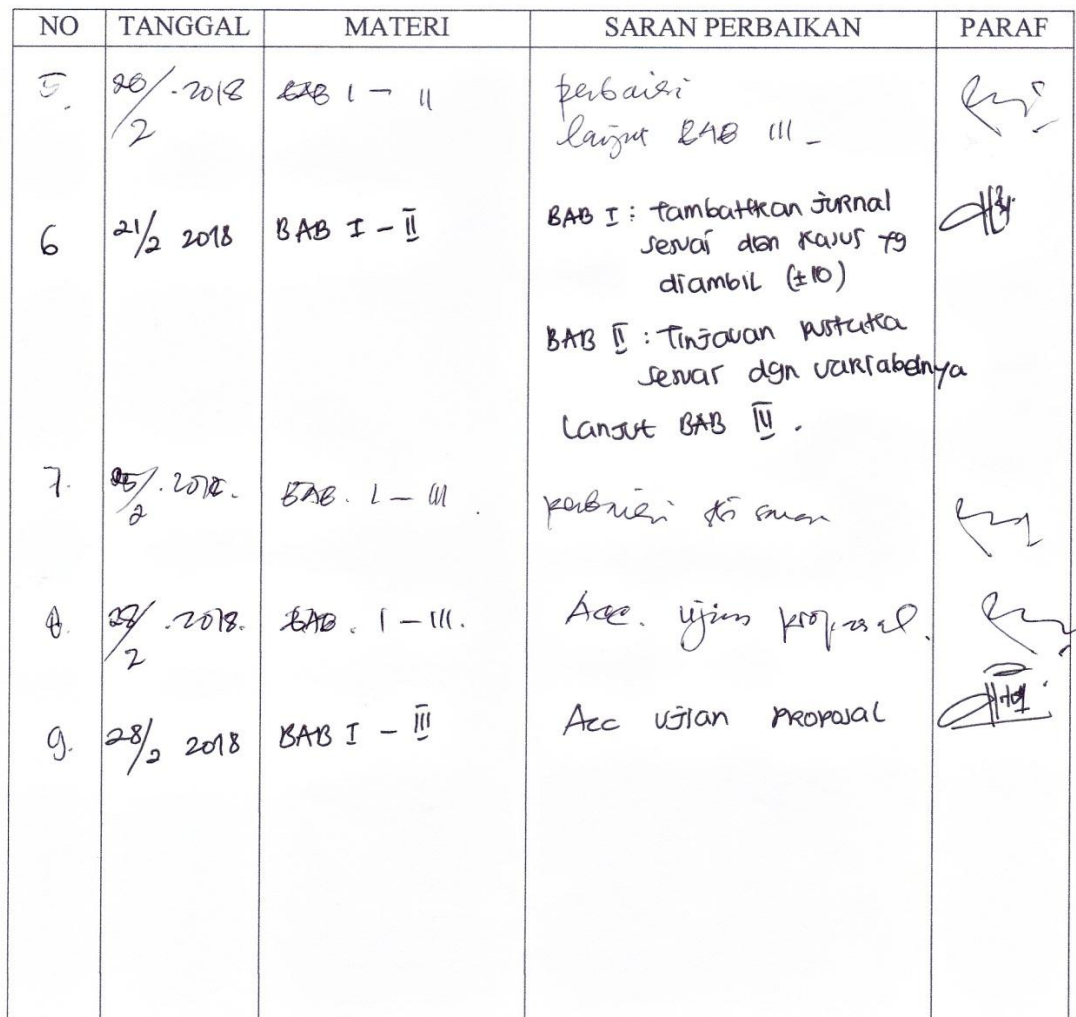 NO TANGGAL MATERI SARAN PERBAIKAN PARAF
5. 20/2 .2018 BAB I - II perbaiki
lanjut BAB III -
6 21/2 2018 BAB I - II BAB I : tambahkan jurnal
sesuai dgn kasus yg
diambil (± 10)
BAB II : Tinjauan pustaka
sesuai dgn variabelnya
Lanjut BAB IV .
7. /2 .2018. BAB. I - III . perbaiki saran
8. 28/2 .2018. BAB . I - III. Acc. ujian proposal.
9. 28/2 2018 BAB I - III Acc ujian proposal